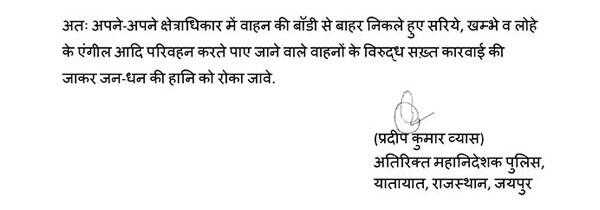 अतः अपने-अपने क्षेत्राधिकार में वाहन की बॉडी से बाहर निकले हुए सरिये, खम्भे व लोहे
के एंगील आदि परिवहन करते पाए जाने वाले वाहनों के विरुद्ध सख़्त कारवाई की
जाकर जन-धन की हानि को रोका जावे.
(प्रदीप कुमार व्यास)
अतिरिक्त महानिदेशक पुलिस,
यातायात, राजस्थान, जयपुर